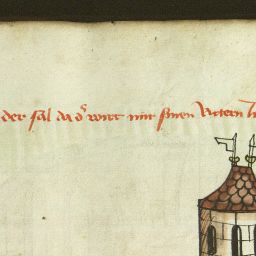 der sal da d͛ wirt mit sinen vettern